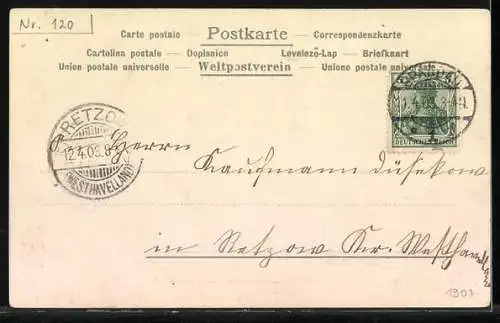 Nr. 120
Carte postale — Postkarte — Correspondenzkarte
Cartolina postale — Dopisnice — Levelező-Lap — Briefkaart
Union postale universelle — Weltpostverein — Unione postale universale
RETZOW
12.4.03.8
(WESTHAVELLAND)
DEUTSCHES REICH
Herrn
Kaufmann Düsekow
in Retzow Kr. Westhavelld
1903